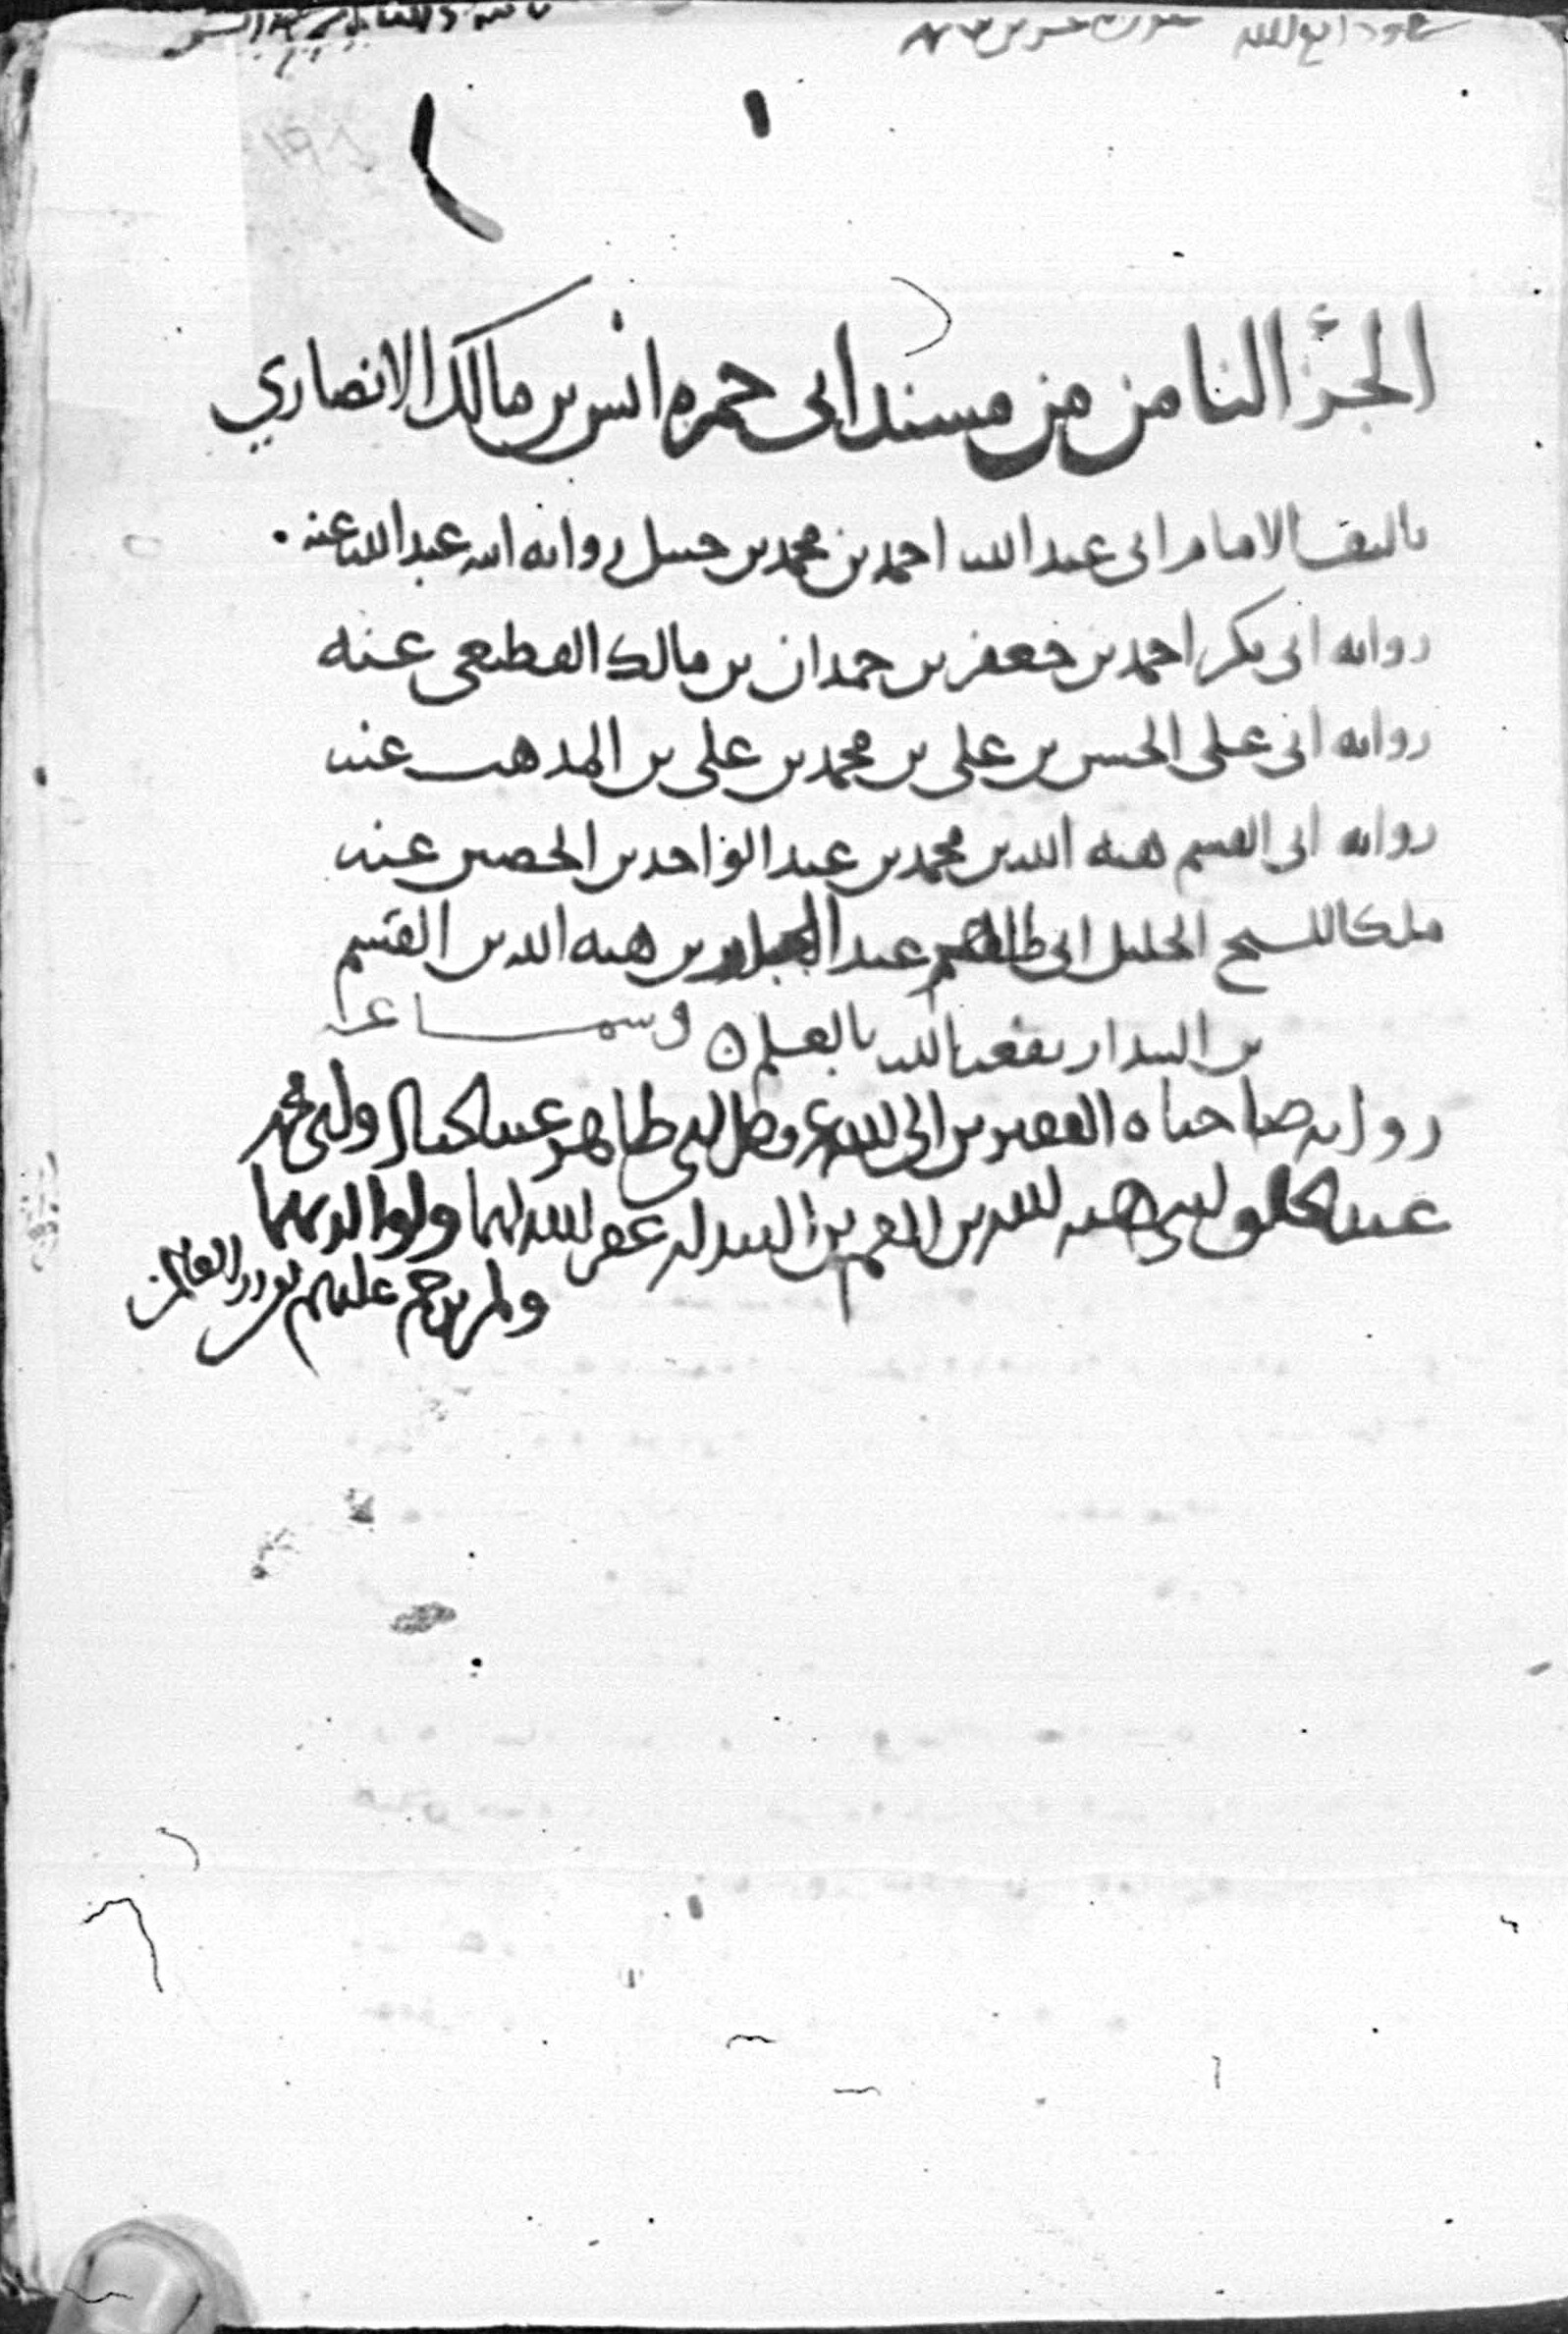 الجزء الثامن من مسند ابى حمزه انس بن مالك الانصاري
تاليف الامام ابى عبد الله احمد بن محمد بن حنبل روايه ابنه عبد الله عنه .
روايه ابى بكر احمد بن جعفر بن حمدان بن مالك القطيعى عنه
روايه ابى على الحسن بن على بن محمد بن على بن المذهب عنه
روايه ابى القسم هبه الله بن محمد بن عبد الواحد بن الحصين عنه
ملكا للشيخ الجليل ابى طاهر عبد الجبار بن هبه الله بن القسم
بن البندار نفعه الله بالعلم ه وسماعا
روايه صاحباه الفقيرين الى الله ابى طاهر عبد الجبار وابى محمد
عبد الخالق ابنى هبه الله بن القسم بن البندار غفر الله لهما ولوالديهما
ولمن ترحم عليهم